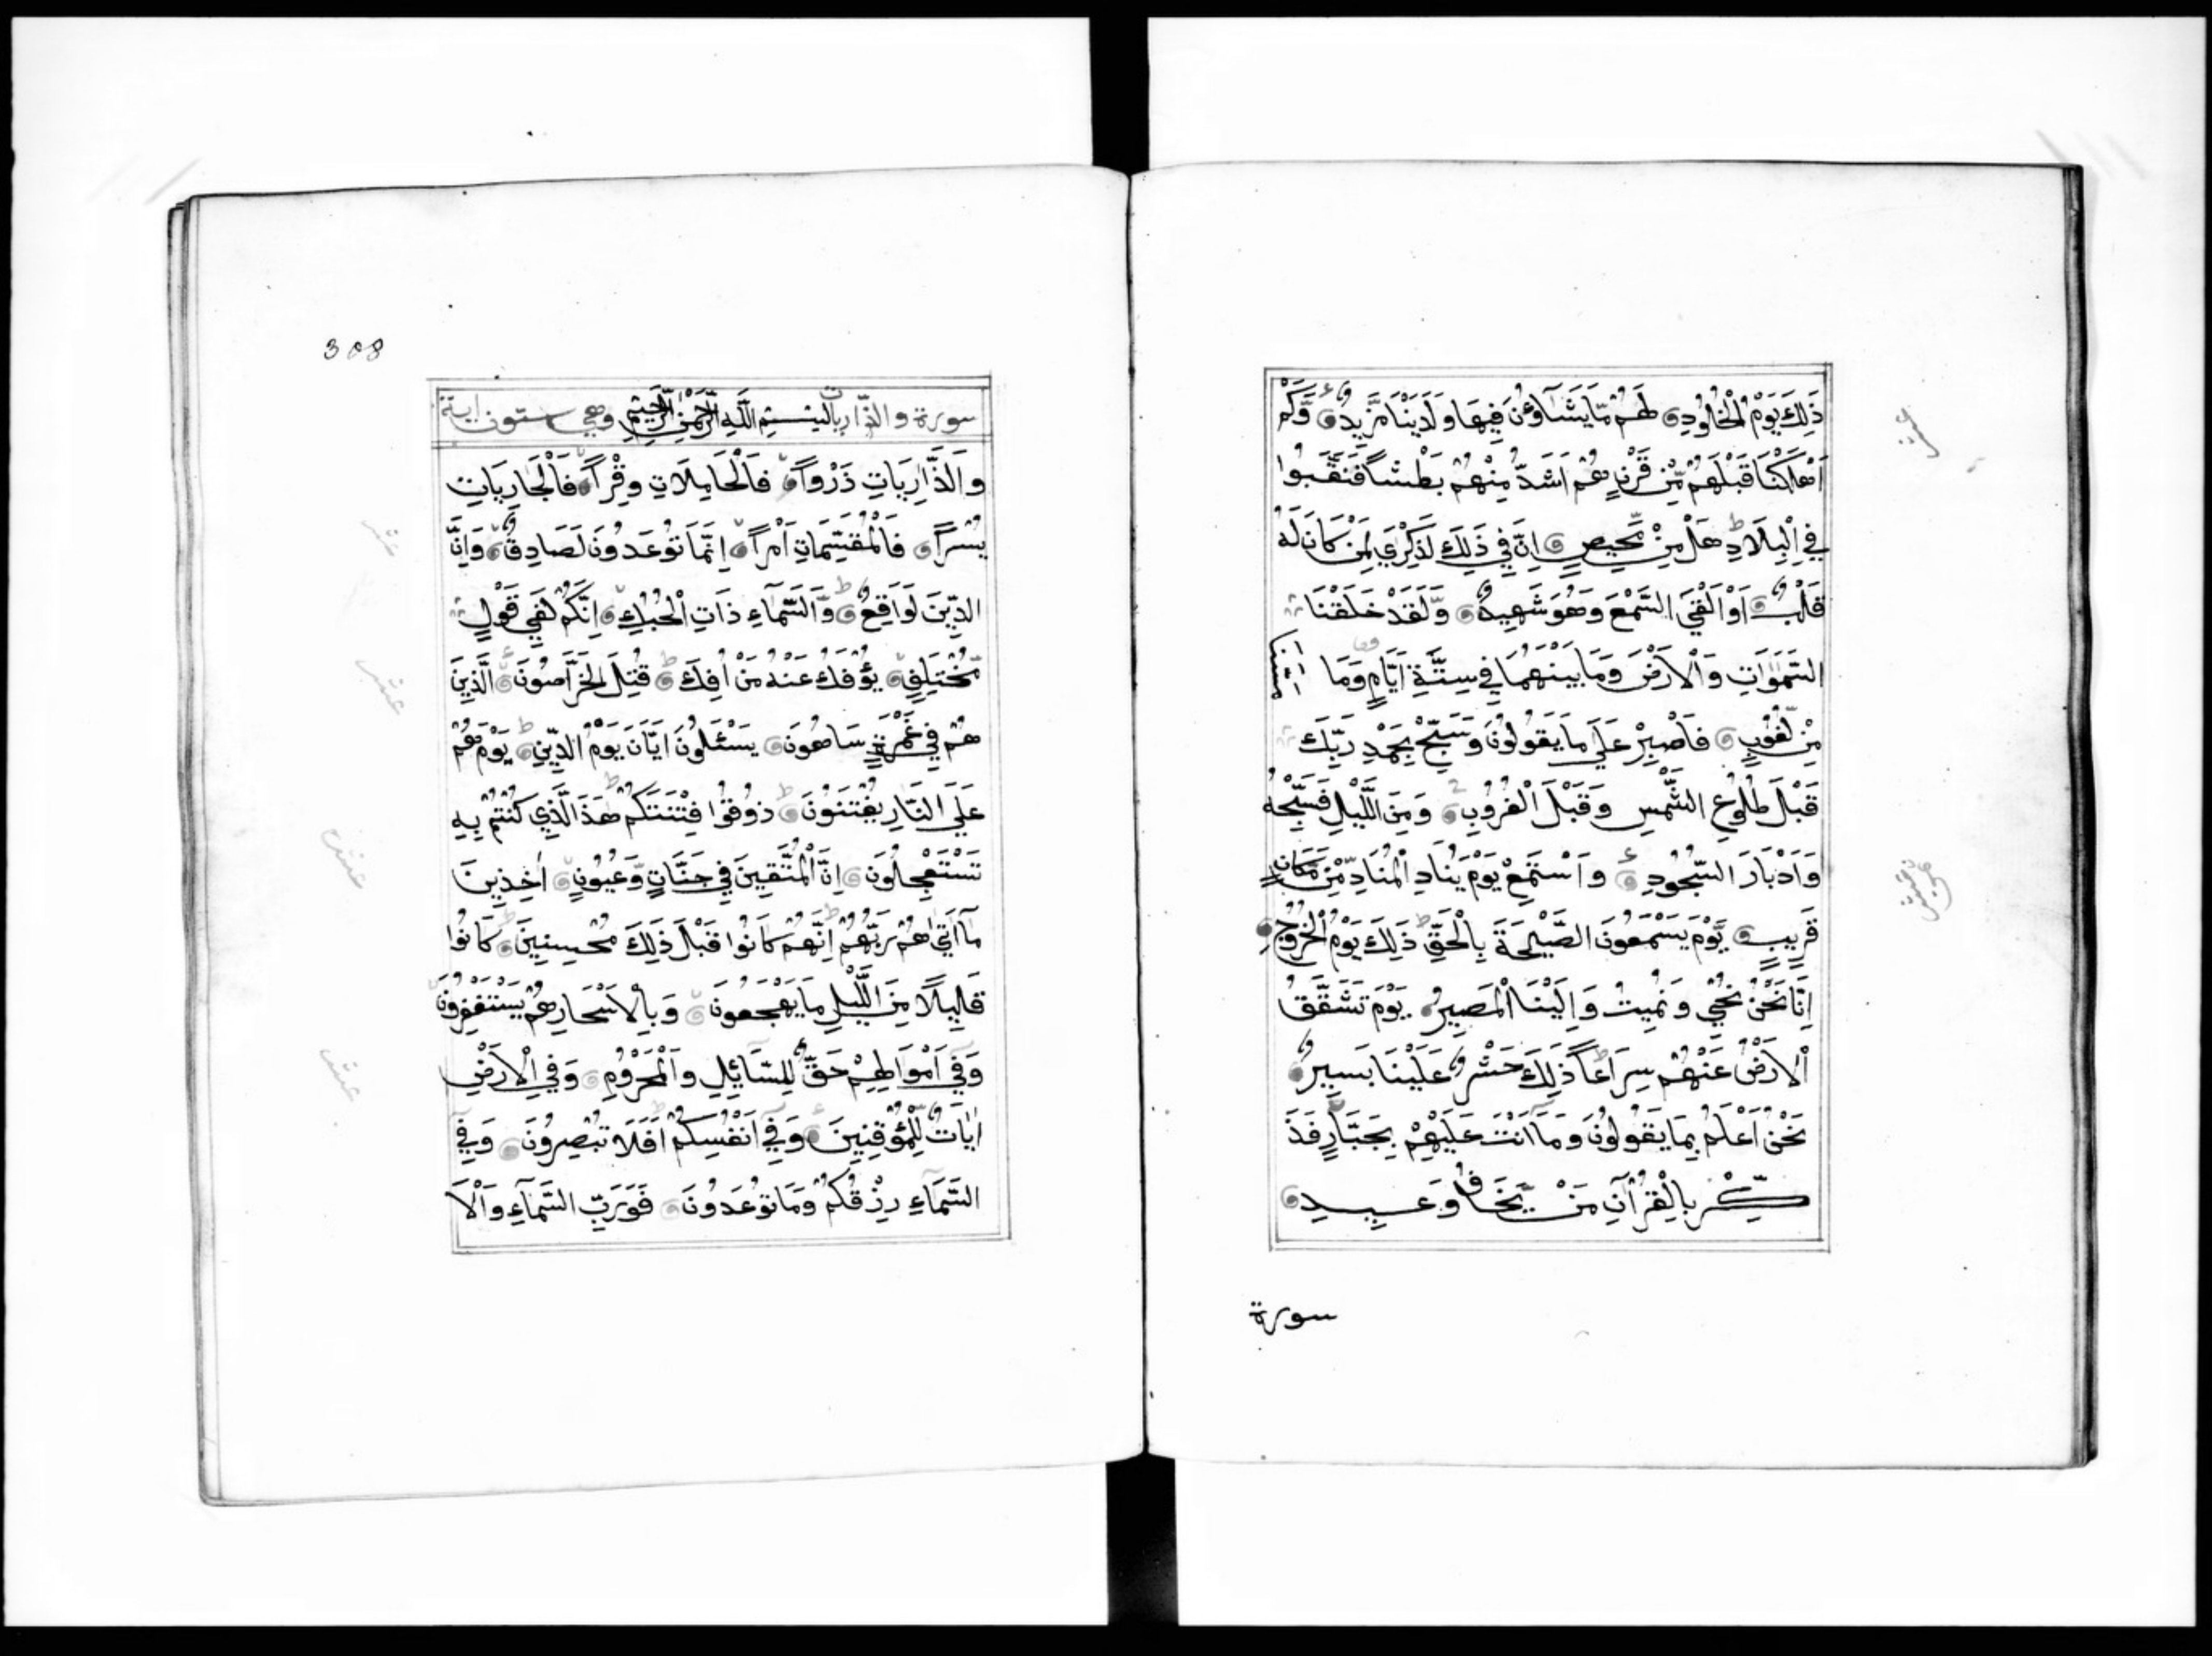 ذَلِكَ يَوْمُ الْخُلُودِ لَهُمْ مَّا يَشَآؤُنَ فِيهَا وَلَدَيْنَا مَزِيدٌ وَّكَمْ
اَهْلَكْنَا قَبْلَهُمْ مِّنْ قَرْنٍ هُمْ اَشَدُّ مِنْهُمْ بَطْشًا فَنَقَّبُوا
فِي الْبِلَادِ هَلْ مِنْ مَّحِيصٍ اِنَّ فِي ذَلِكَ لَذِكْرَى لِمَنْ كَانَ لَهُ
قَلْبٌ اَوْ اَلْقَى السَّمْعَ وَهُوَ شَهِيدٌ وَّلَقَدْ خَلَقْنَا
السَّمَوَاتِ وَالْاَرْضَ وَمَا بَيْنَهُمَا فِي سِتَّةِ اَيَّامٍ وَمَا
مِنْ لُّغُوبٍ فَاصْبِرْ عَلَى مَا يَقُولُونَ وَسَبِّحْ بِحَمْدِ رَبِّكَ
قَبْلَ طُلُوعِ الشَّمْسِ وَقَبْلَ الْغُرُوبِ وَمِنَ اللَّيْلِ فَسَبِّحْهُ
وَاَدْبَارَ السُّجُودِ وَاسْتَمِعْ يَوْمَ يُنَادِ الْمُنَادِ مِّنْ مَّكَانٍ
قَرِيبٍ يَّوْمَ يَسْمَعُونَ الصَّيْحَةَ بِالْحَقِّ ذَلِكَ يَوْمُ الْخُرُوجِ
اِنَّا نَحْنُ نُحْيِي وَنُمِيتُ وَاِلَيْنَا الْمَصِيرُ يَوْمَ تَشَقَّقُ
الْاَرْضُ عَنْهُمْ سِرَاعًا ذَلِكَ حَشْرٌ عَلَيْنَا يَسِيرٌ
نَحْنُ اَعْلَمُ بِمَا يَقُولُونَ وَمَا اَنْتَ عَلَيْهِمْ بِجَبَّارٍ فَذَ
كِّرْ بِالْقُرْآنِ مَنْ يَّخَافُ وَعِيدِ
سورة
308
سورة والذاريات بِسْمِ اللَّهِ الرَّحْمَنِ الرَّحِيمِ وهي ستون اية
وَالذَّارِيَاتِ ذَرْوًا فَالْحَامِلَاتِ وِقْرًا فَالْجَارِيَاتِ
يُسْرًا فَالْمُقَسِّمَاتِ اَمْرًا اِنَّمَا تُوعَدُونَ لَصَادِقٌ وَاِنَّ
الدِّينَ لَوَاقِعٌ وَّالسَّمَآءِ ذَاتِ الْحُبُكِ اِنَّكُمْ لَفِي قَوْلٍ
مُّخْتَلِفٍ يُؤْفَكُ عَنْهُ مَنْ اُفِكَ قُتِلَ الْخَرَّاصُونَ الَّذِينَ
هُمْ فِي غَمْرَةٍ سَاهُونَ يَسْئَلُونَ اَيَّانَ يَوْمُ الدِّينِ يَوْمَ هُمْ
عَلَى النَّارِ يُفْتَنُونَ ذُوقُوا فِتْنَتَكُمْ هَذَا الَّذِي كُنْتُمْ بِهِ
تَسْتَعْجِلُونَ اِنَّ الْمُتَّقِينَ فِي جَنَّاتٍ وَّعُيُونٍ اٰخِذِينَ
مَآ اٰتَيٰهُمْ رَبُّهُمْ اِنَّهُمْ كَانُوا قَبْلَ ذَلِكَ مُحْسِنِينَ كَانُوا
قَلِيلًا مِنَ اللَّيْلِ مَا يَهْجَعُونَ وَبِالْاَسْحَارِ هُمْ يَسْتَغْفِرُونَ
وَفِي اَمْوَالِهِمْ حَقٌّ لِلسَّآئِلِ وَالْمَحْرُومِ وَفِي الْاَرْضِ
اٰيَاتٌ لِّلْمُؤْقِنِينَ وَفِي اَنْفُسِكُمْ اَفَلَا تُبْصِرُونَ وَفِي
السَّمَآءِ رِزْقُكُمْ وَمَا تُوعَدُونَ فَوَرَبِّ السَّمَآءِ وَالْاَ
عشر
عشر
عشر
عشر